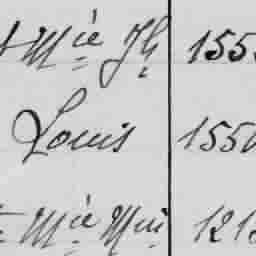 Mie Jh 155
Louis 1550
Mie Mie 121